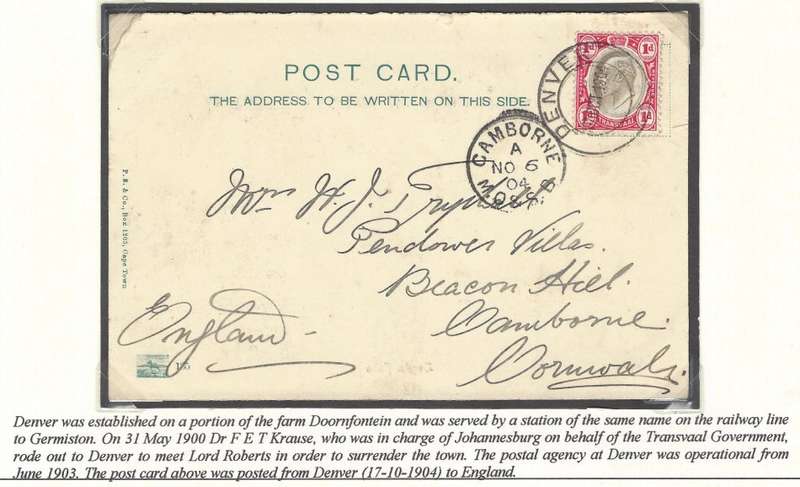 POST CARD.
THE ADDRESS TO BE WRITTEN ON THIS SIDE.
1d 1d
POSTAGE REVENUE
1d TRANSVAAL 1d
DENVER
CAMBORNE
A
NO 6
04
P. S. & Co., Box 1205, Cape Town
Mrs W. J.
Pendower Villas.
Beacon Hill.
England
Camborne.
Cornwall.
Denver was established on a portion of the farm Doornfontein and was served by a station of the same name on the railway line
to Germiston. On 31 May 1900 Dr F E T Krause, who was in charge of Johannesburg on behalf of the Transvaal Government,
rode out to Denver to meet Lord Roberts in order to surrender the town. The postal agency at Denver was operational from
June 1903. The post card above was posted from Denver (17-10-1904) to England.